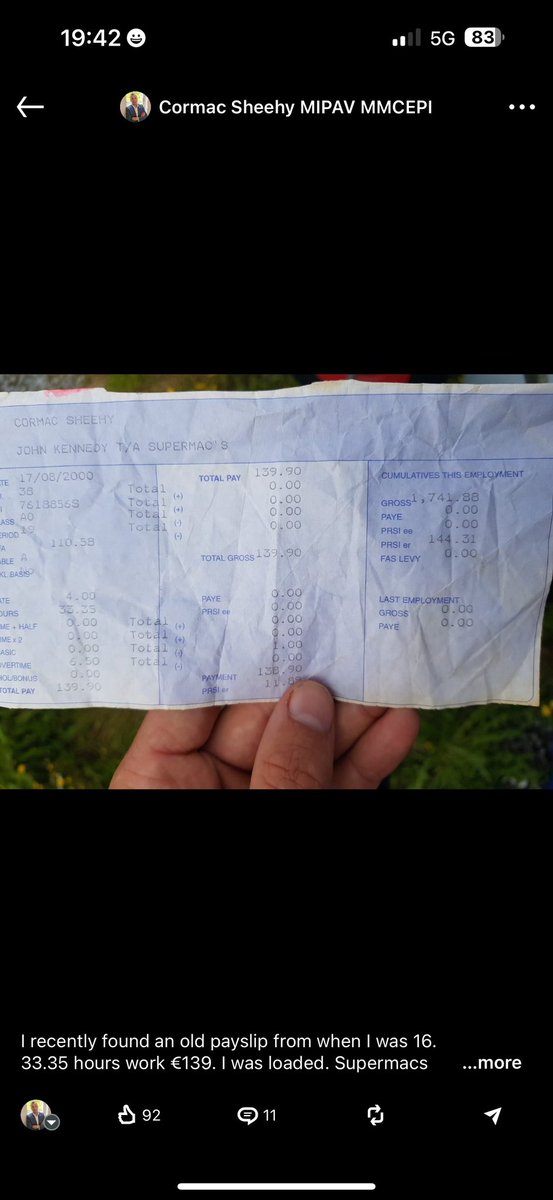 19:42
5G 83
Cormac Sheehy MIPAV MMCEPI
CORMAC SHEEHY
JOHN KENNEDY T/A SUPERMAC"S
17/08/2000
38
7618856S
A0
19
110.58
A
4.00
33.35
0.00
0.00
0.00
6.50
0.00
TOTAL PAY 139.90
Total (+)
Total (+)
Total (-)
Total (-)
Total (+)
Total (+)
Total (-)
Total (-)
TOTAL PAY 139.90
0.00
0.00
0.00
0.00
TOTAL GROSS 139.90
PAYE 0.00
PRSI ee 0.00
0.00
0.00
1.00
0.00
PAYMENT 138.90
PRSI er
CUMULATIVES THIS EMPLOYMENT
GROSS 1,741.88
PAYE 0.00
PRSI ee 0.00
PRSI er 144.31
FAS LEVY 0.00
LAST EMPLOYMENT
GROSS 0.00
PAYE 0.00
I recently found an old payslip from when I was 16.
33.35 hours work €139. I was loaded. Supermacs ...more
92
11